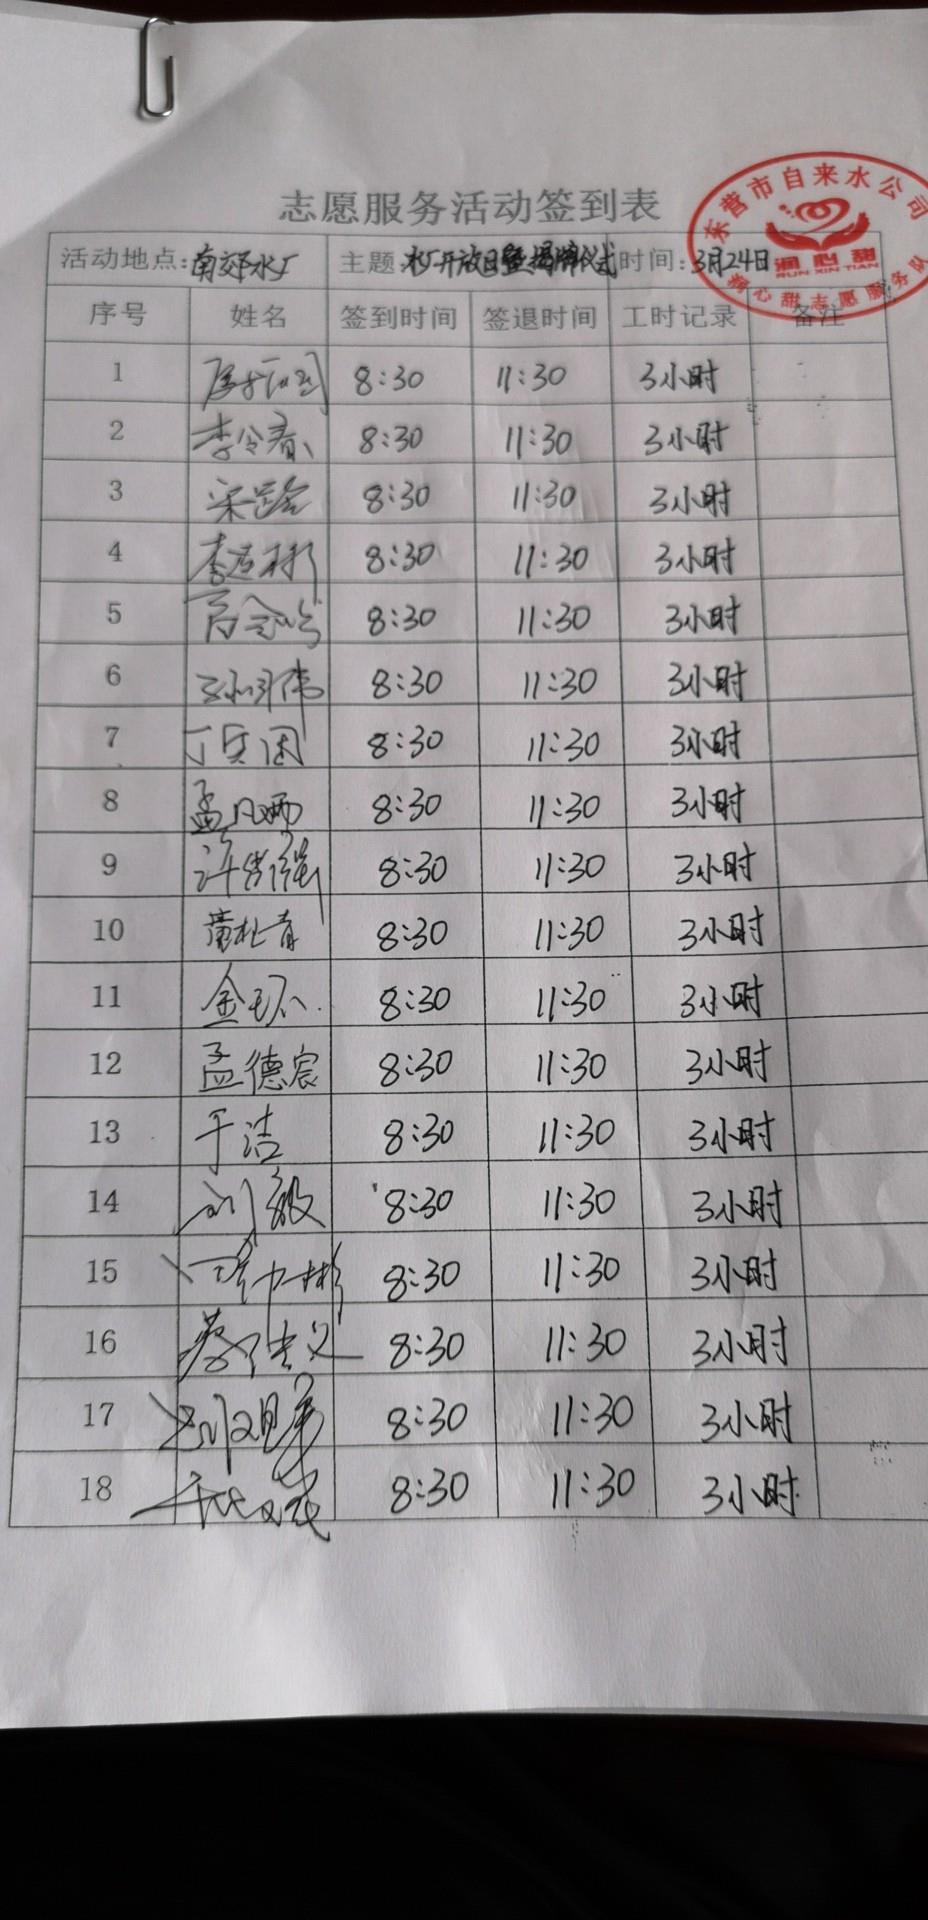 志愿服务活动签到表
东营市自来水公司
润心甜
RUN XIN TIAN
润心甜志愿服务队
活动地点:南郊水厂 主题:水厂开放日暨揭牌仪式 时间:3月24日
序号 姓名 签到时间 签退时间 工时记录 备注
1 8:30 11:30 3小时
2 李令春 8:30 11:30 3小时
3 8:30 11:30 3小时
4 8:30 11:30 3小时
5 8:30 11:30 3小时
6 8:30 11:30 3小时
7 8:30 11:30 3小时
8 8:30 11:30 3小时
9 8:30 11:30 3小时
10 8:30 11:30 3小时
11 金环 8:30 11:30 3小时
12 孟德宸 8:30 11:30 3小时
13 于洁 8:30 11:30 3小时
14 刘毅 8:30 11:30 3小时
15 8:30 11:30 3小时
16 8:30 11:30 3小时
17 8:30 11:30 3小时
18 8:30 11:30 3小时